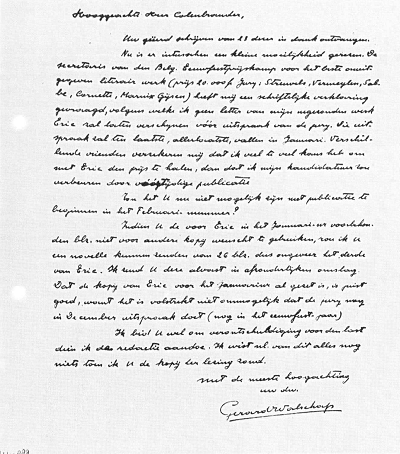 Hooggeachte Heer Colenbrander,
Uw geëerd schrijven van 23 dezer in dank ontvangen.
Nu is er intusschen een kleine moeilijkheid gerezen. De
secretaris van den Belg. Eeuwfeestprijskamp voor het beste onuit-
gegeven literair werk (prijs 20.000 f. Jury: Streuvels, Vermeylen, Sab-
be, Cornette, Marnix Gijsen) heeft mij een schriftelijke verklaring
gevraagd, volgens welke ik geen letter van mijn ingezonden werk
Eric zal laten verschijnen vóór uitspraak van de jury. Die uit-
spraak zal ten laatste, allerlaatste, vallen in Januari. Verschil-
lende vrienden verzekeren mij dat ik veel te veel kans heb om
met Eric den prijs te halen, dan dat ik mijn kandidatuur zou
verbeuren door vóórtijdige publicatie
Zou het U nu niet mogelijk zijn met publicatie te
beginnen in het Februari-nummer?
Indien U de voor Eric in het Januari-nr voorbehou-
den blz. niet voor andere kopij wenscht te gebruiken, zou ik U
een novelle kunnen zenden van 26 blz. dus ongeveer het derde
van Eric. Ik zend U deze alvast in afzonderlijken omslag.
Dat de kopij van Eric voor het januarinr al gezet is, is juist
goed, want het is volstrekt niet onmogelijk dat de jury nog
in December uitspraak doet (nog in het eeuwfeest-jaar)
Ik bid U wel om verontschuldiging voor den last
dien ik de redactie aandoe. Ik wist nl. van dit alles nog
niets toen ik U de kopij ter lezing zond.
met de meeste hoogachting
uw dw.
Gerard Walschap